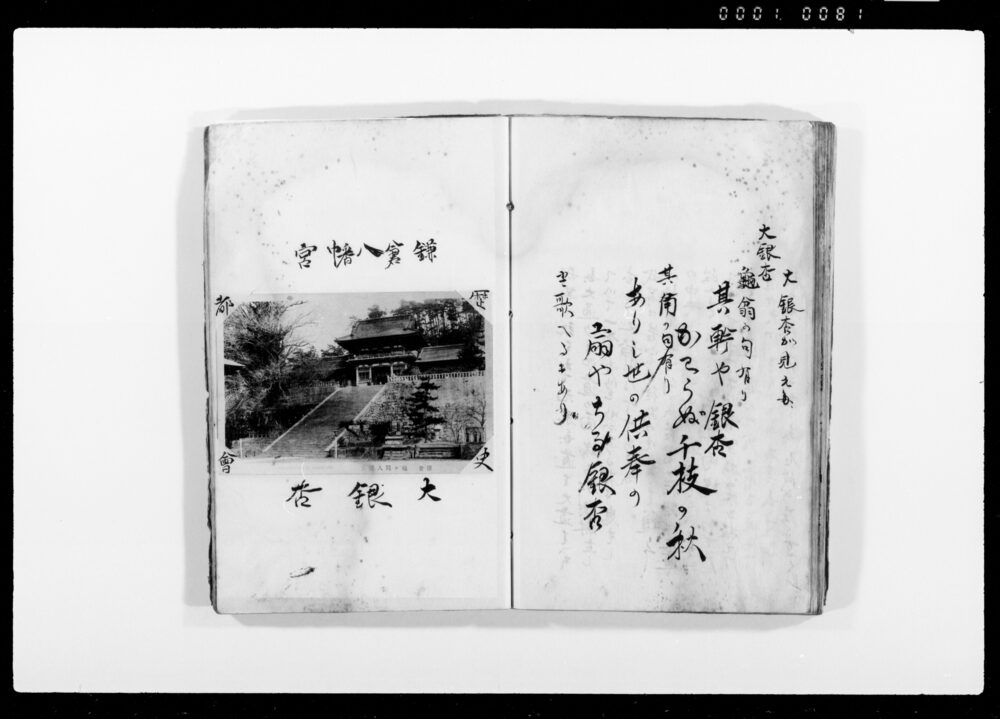 0001. 0081
大銀杏が見える、
大銀杏
龜翁の句有り
其幹や銀杏
かてらぬ千枝の秋
其角の句有り
ありし世の供奉の
扇やちる銀杏
と歌へるもあり。
鎌倉八幡宮
歴史
都會
大銀杏